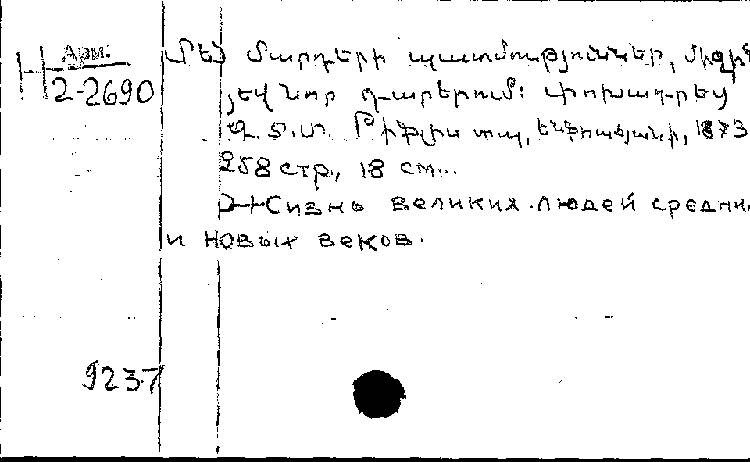 Арм.
2-2690
Մեծ մարդերի պատմութիւններ, միջին
եվ նոր դարերում: Փոխադրեց
Թիֆլիս տպ., 1873
258 стр., 18 см..
Жизнь великих людей средни.
и новых веков.
9237